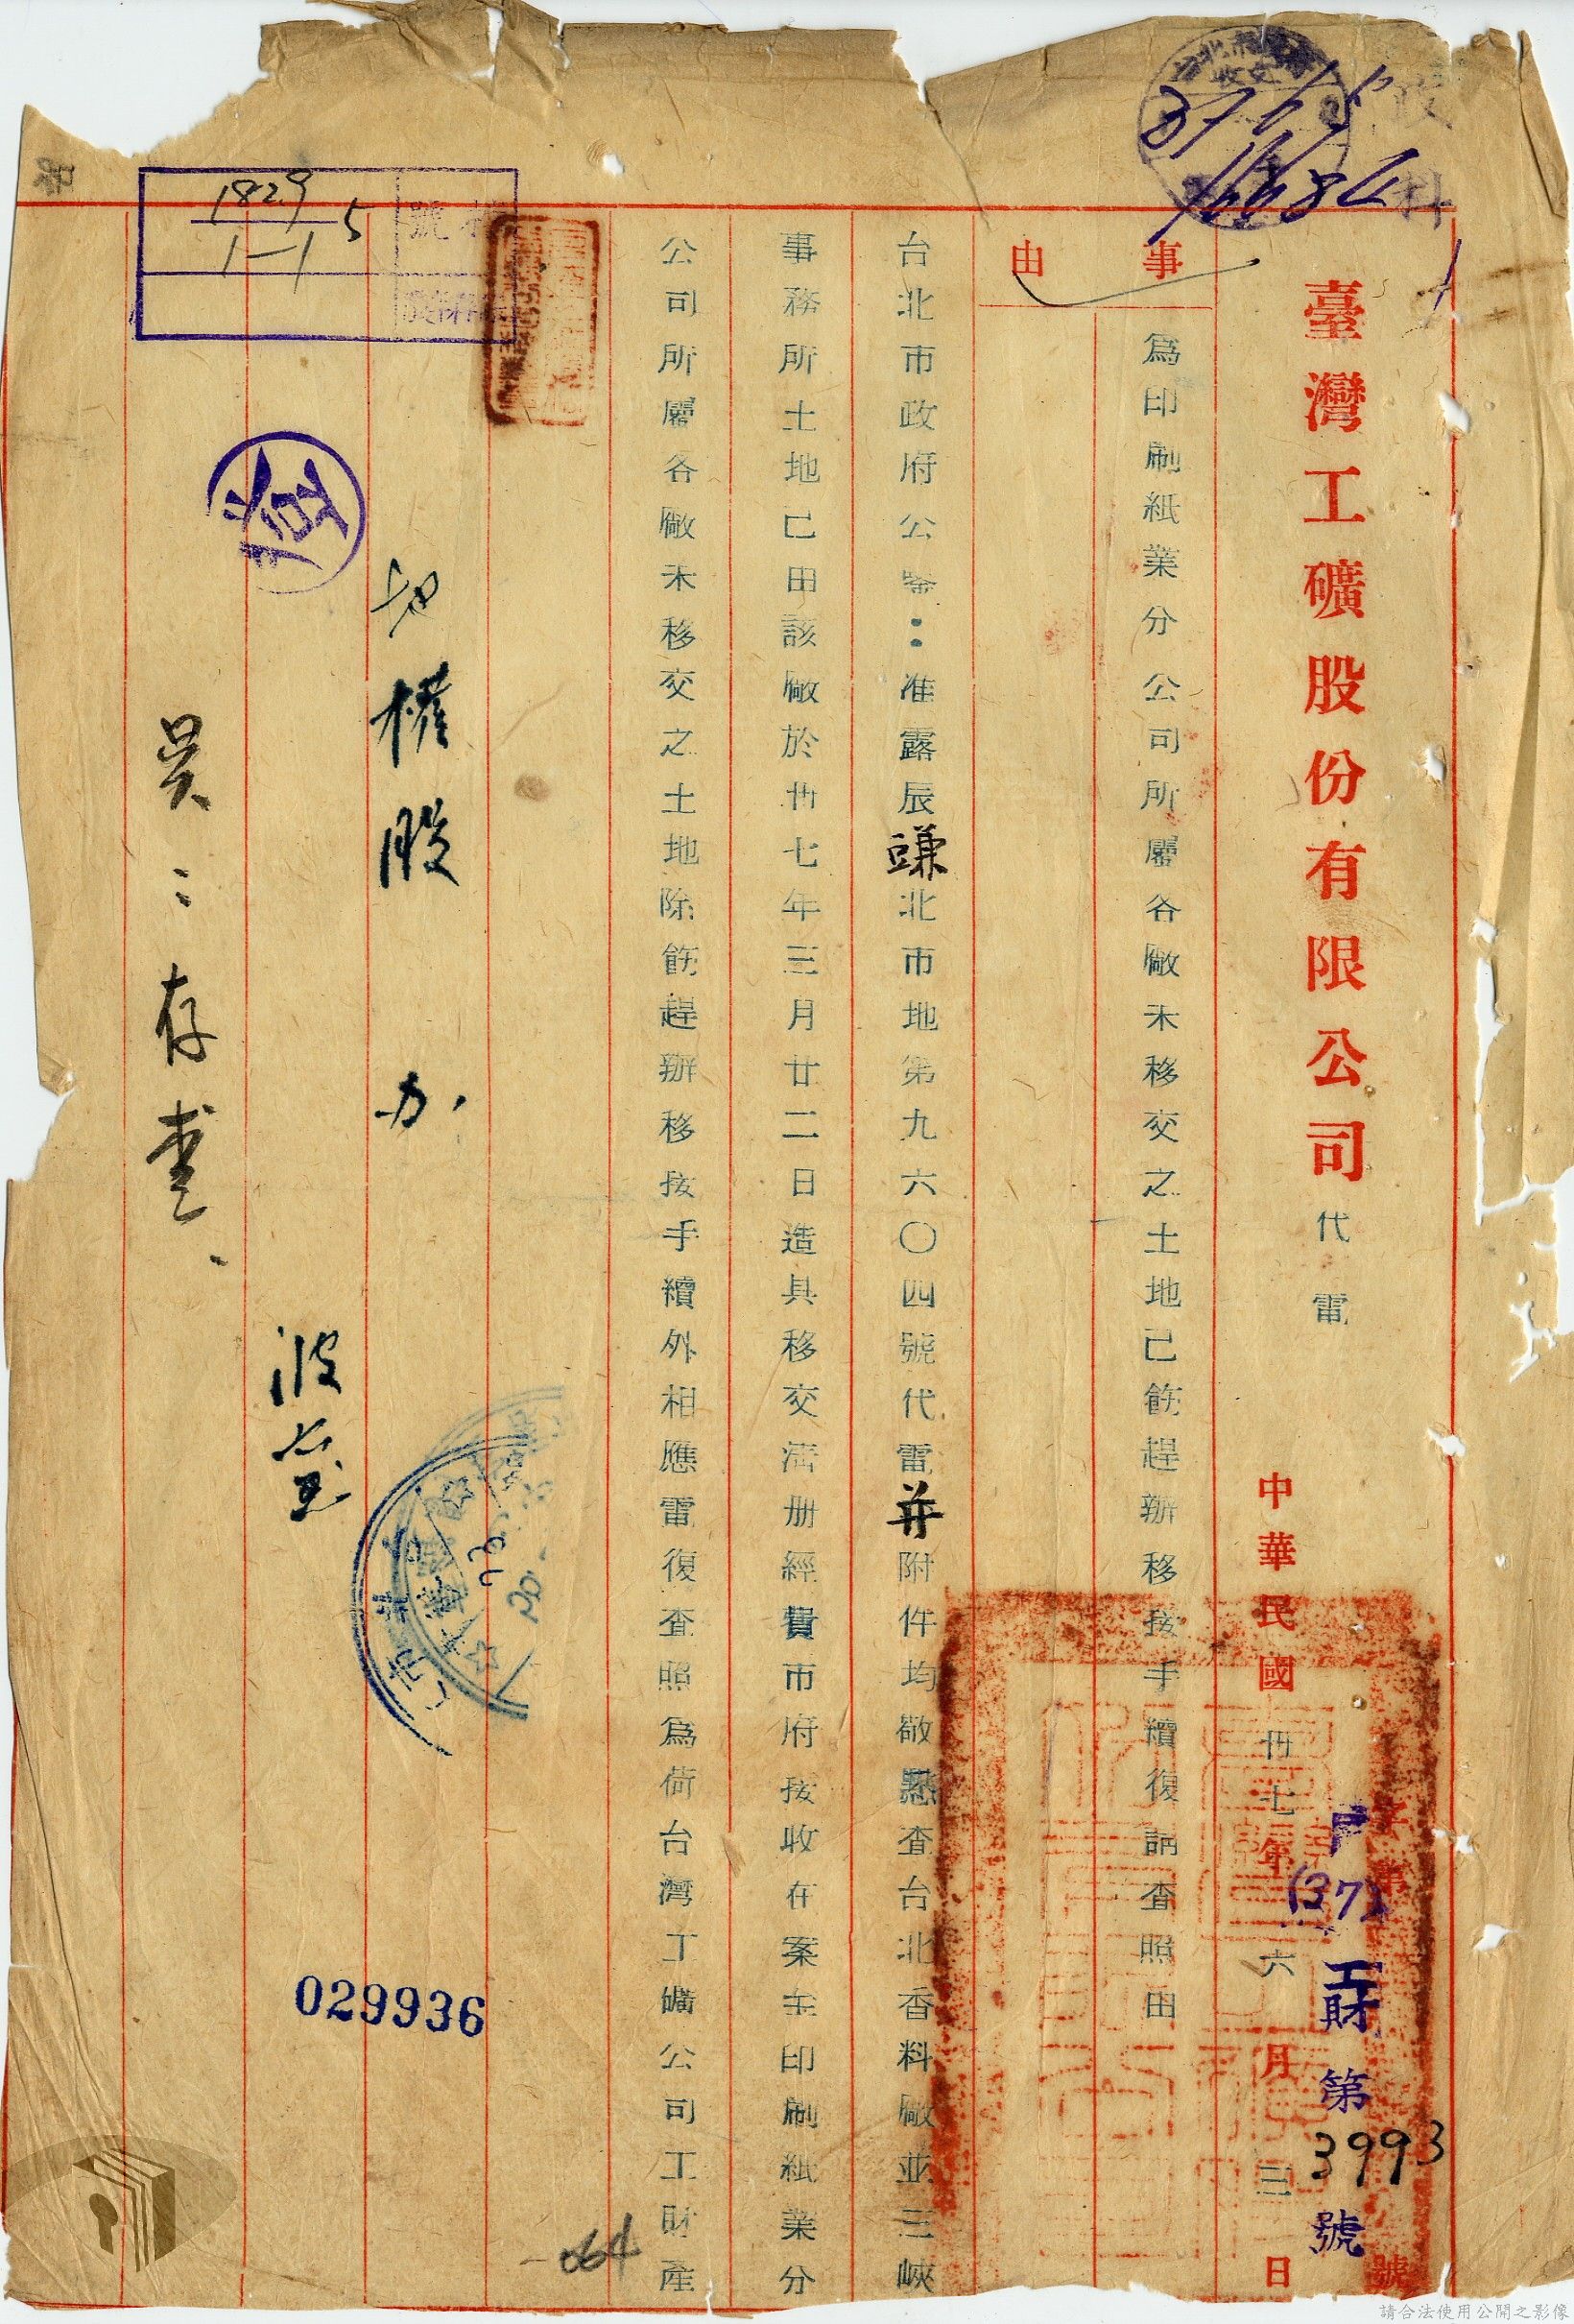 臺灣工礦股份有限公司代電
中華民國卅七年六月三日
戶(37)工財第3993號
事由
爲印刷紙業分公司所屬各廠未移交之土地已飭趕辦移接手續復請查照由
台北市政府公鑒：准露辰謙北市地第九六〇四號代電并附件均敬悉查台北香料廠並三峽
事務所土地已由該廠於卅七年三月廿二日造具移交清册經貴市府接收在案至印刷紙業分
公司所屬各廠未移交之土地除飭趕辦移接手續外相應電復查照爲荷台灣工礦公司工財產
地權股 办
吳：存查、
檔號
1829
1-1
5
029936
064
37 6 5
請合法使用公開之影像